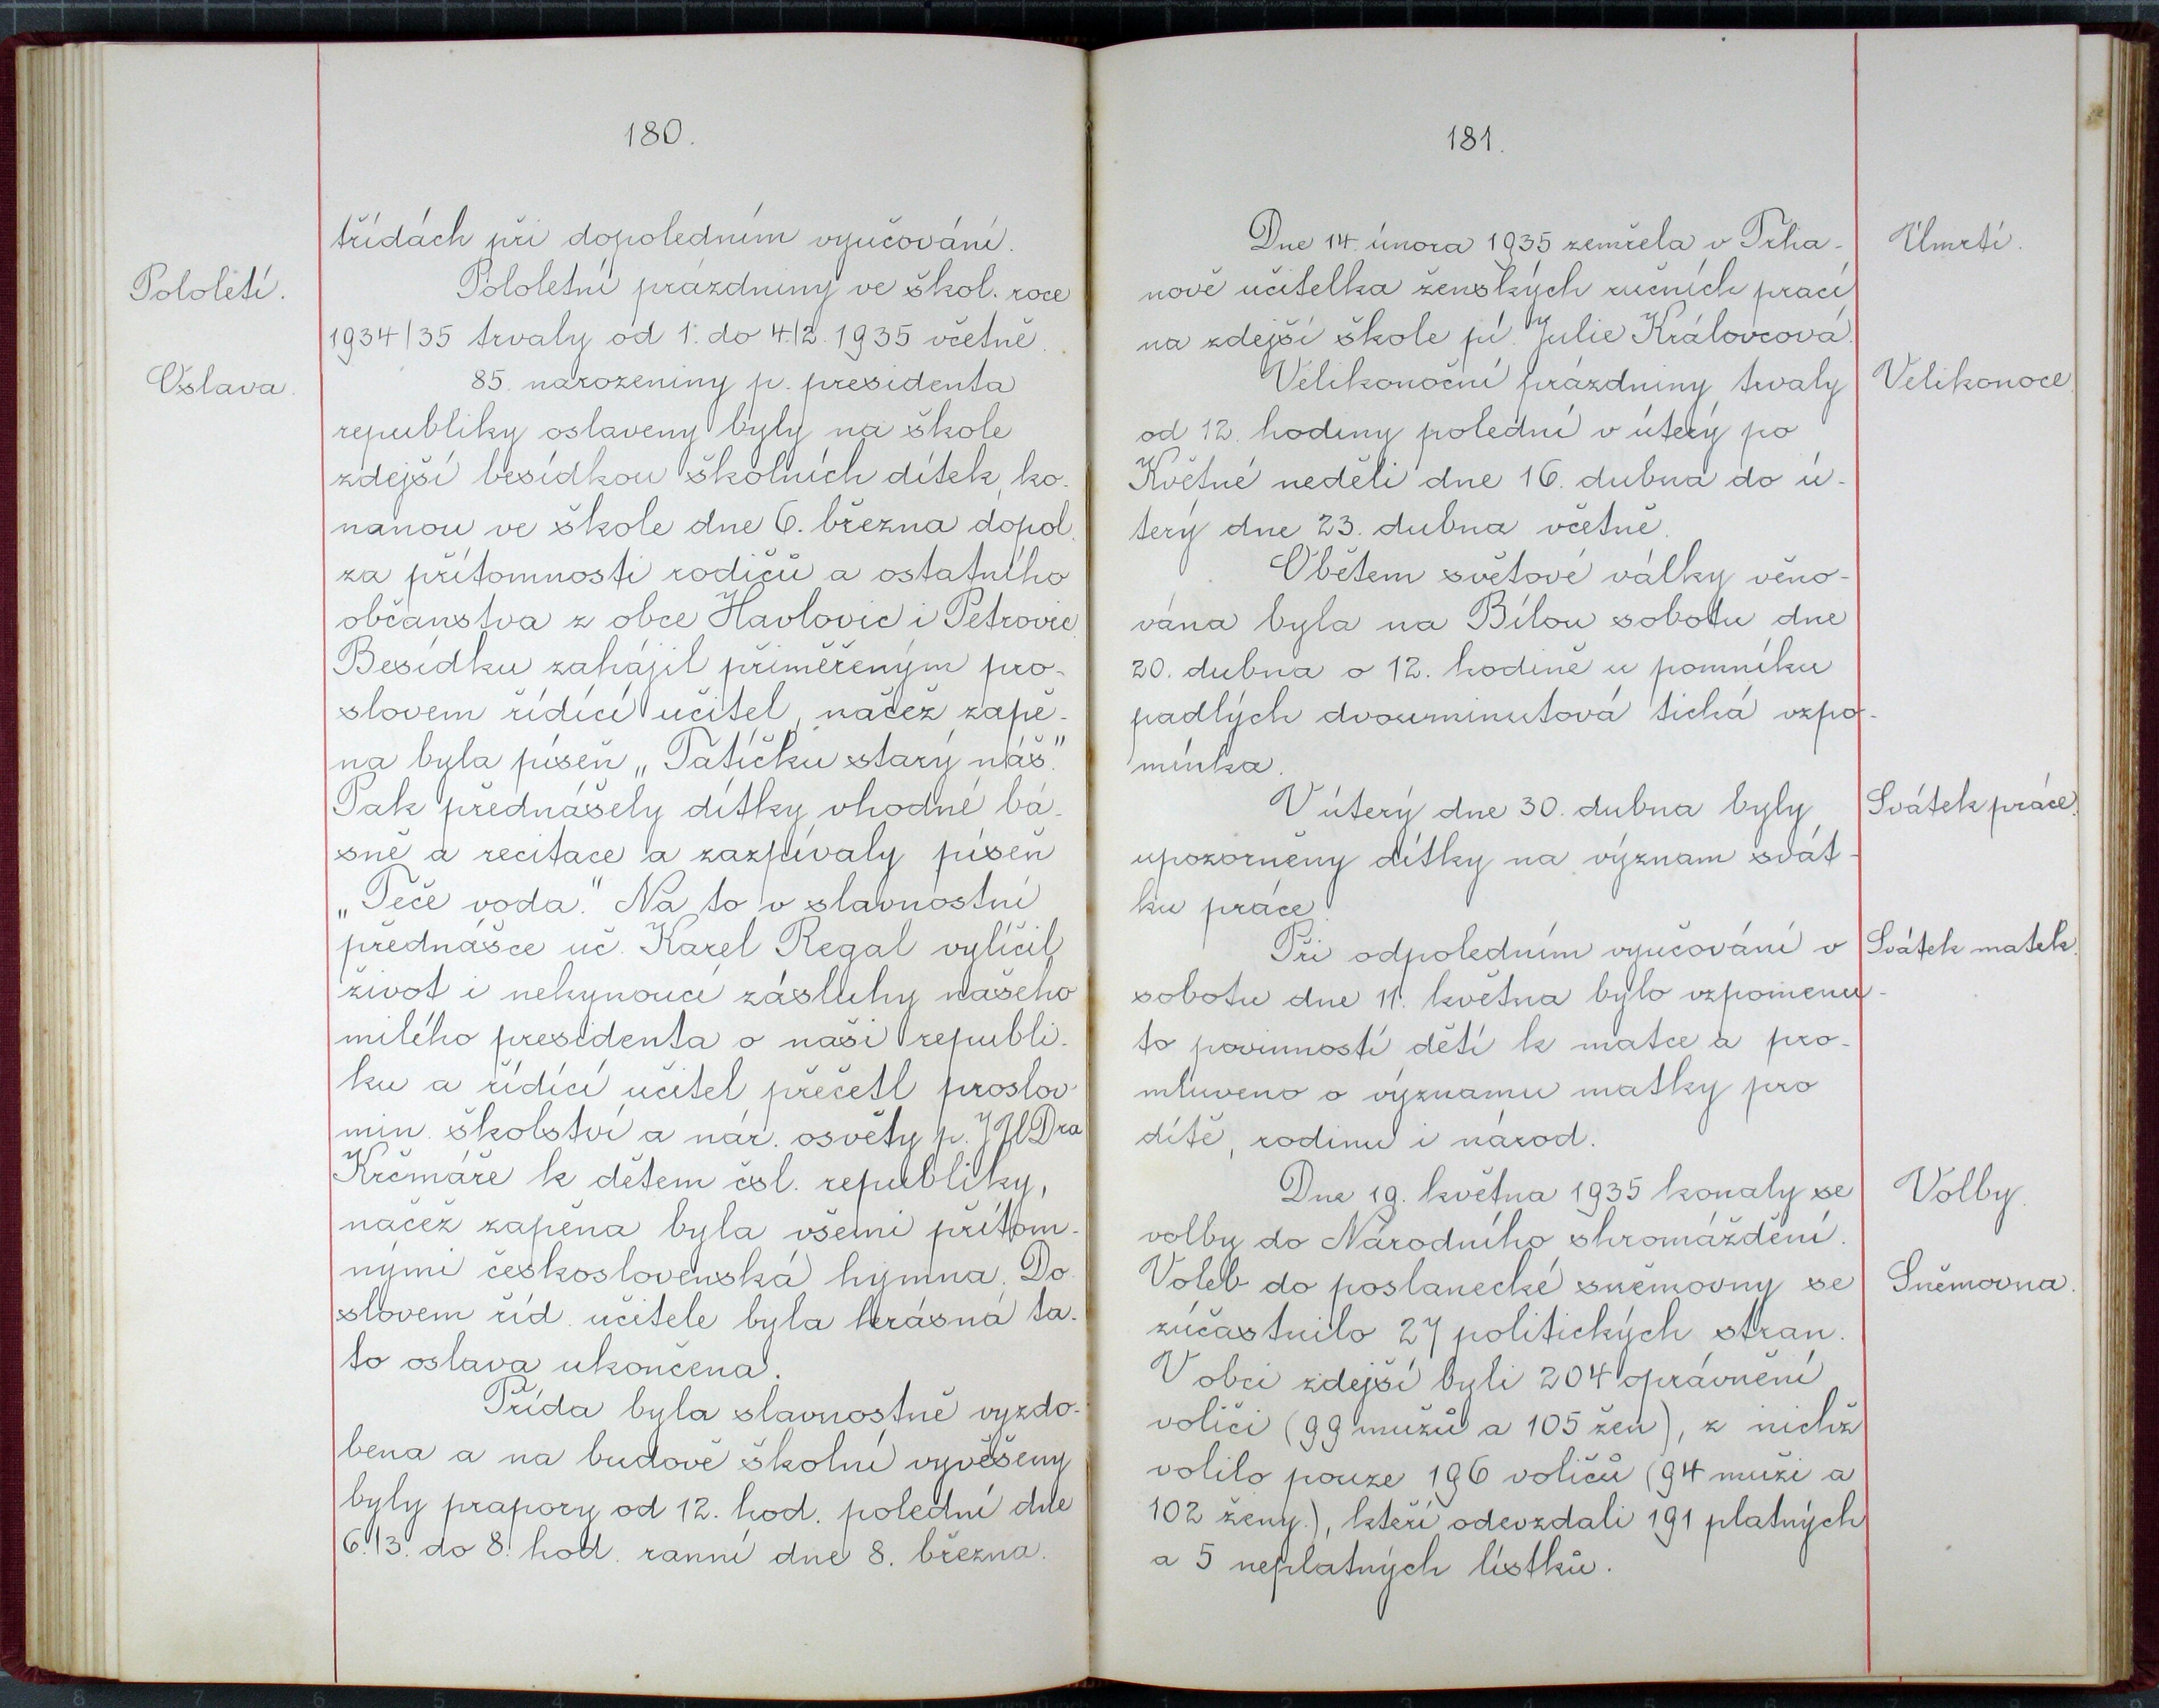 180.
třídách při dopoledním vyučování.
Pololetí.
Pololetní prázdniny ve škol. roce
1934/35 trvaly od 1. do 4./2. 1935 včetně.
Oslava.
85. narozeniny p. presidenta
republiky oslaveny byly na škole
zdejší besídkou školních dítek, ko-
nanou ve škole dne 6. března dopol.
za přítomnosti rodičů a ostatního
občanstva z obce Havlovic i Petrovic.
Besídku zahájil přiměřeným pro-
slovem řídící učitel, načež zapě-
na byla píseň „Tatíčku starý náš."
Pak přednášely dítky vhodné bá-
sně a recitace a zazpívaly píseň
„Teče voda." Na to v slavnostní
přednášce uč. Karel Regal vylíčil
život i nehynoucí zásluhy našeho
milého presidenta o naši republi-
ku a řídící učitel přečetl proslov
min. školství a nár. osvěty p. JUDra
Krčmáře k dětem čsl. republiky,
načež zapěna byla všemi přítom-
nými československá hymna. Do-
slovem říd. učitele byla krásná ta-
to oslava ukončena.
Třída byla slavnostně vyzdo-
bena a na budově školní vyvěšeny
byly prapory od 12. hod. polední dne
6./3. do 8. hod. ranní dne 8. března.
181.
Dne 14. února 1935 zemřela v Trha-
Úmrtí.
nově učitelka ženských ručních prací
na zdejší škole pí. Julie Královcová.
Velikonoční prázdniny trvaly
Velikonoce.
od 12. hodiny polední v úterý po
Květné neděli dne 16. dubna do ú-
terý dne 23. dubna včetně.
Obětem světové války věno-
vána byla na Bílou sobotu dne
20. dubna o 12. hodině u pomníku
padlých dvouminutová tichá vzpo-
mínka.
V úterý dne 30. dubna byly
Svátek práce.
upozorněny dítky na význam svát-
ku práce.
Při odpoledním vyučování v
Svátek matek.
sobotu dne 11. května bylo vzpomenu-
to povinností dětí k matce a pro-
mluveno o významu matky pro
dítě, rodinu i národ.
Dne 19. května 1935 konaly se
Volby.
volby do Národního shromáždění.
Voleb do poslanecké sněmovny se
Sněmovna.
zúčastnilo 27 politických stran.
V obci zdejší byli 204 oprávnění
voliči (99 mužů a 105 žen), z nichž
volilo pouze 196 voličů (94 muži a
102 ženy.), kteří odevzdali 191 platných
a 5 neplatných lístků.